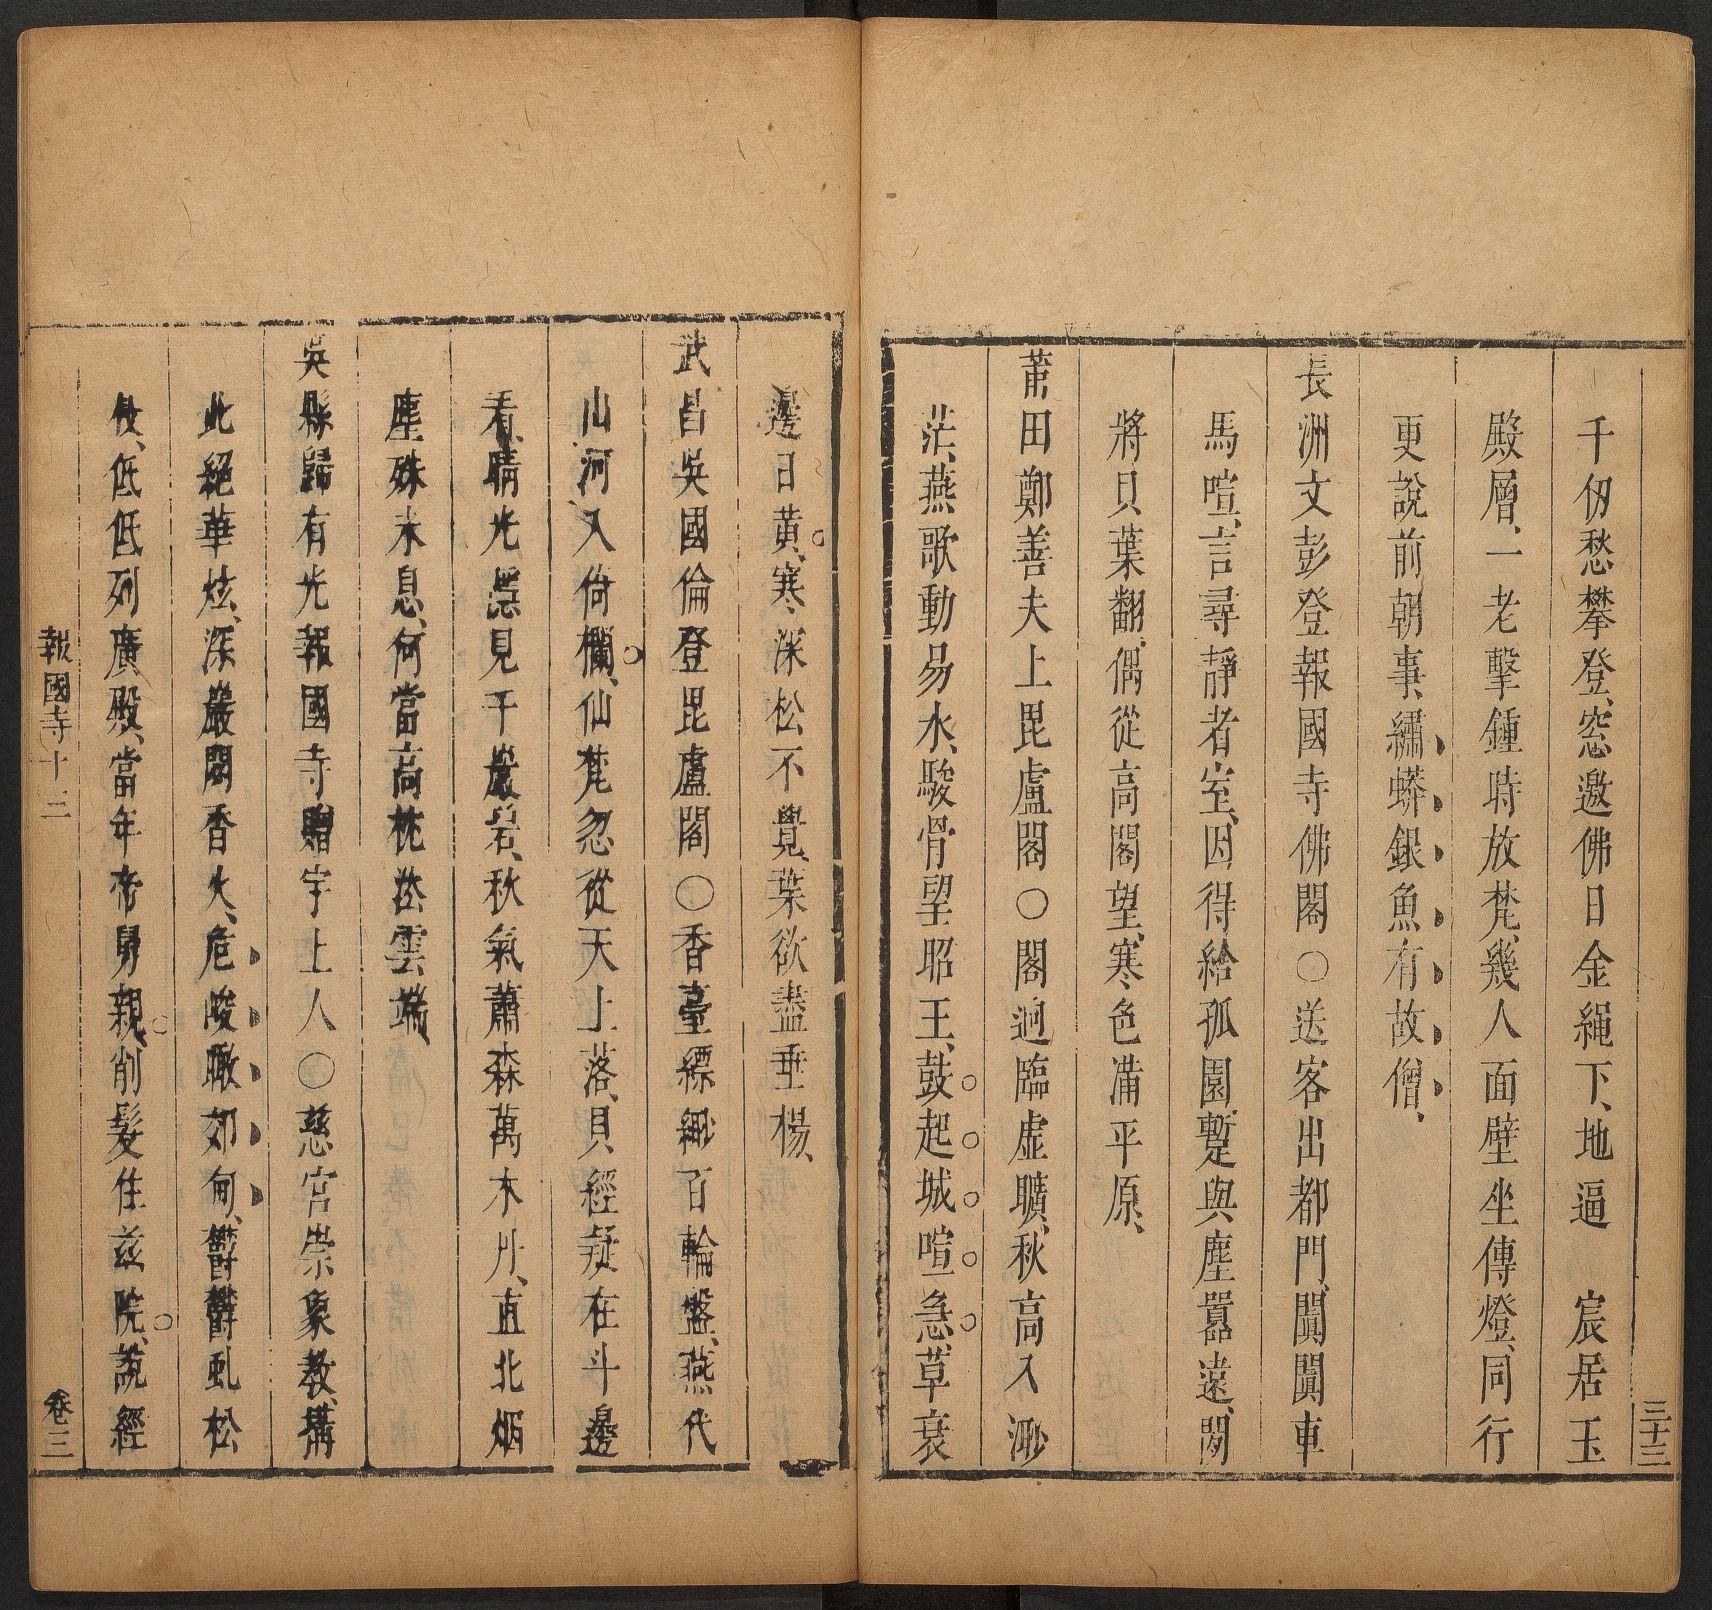 三十三
千仞愁攀登、窓邀佛日金繩下、地逼　宸居玉
殿層、一老擊鍾時放梵、幾人面壁坐傳燈、同行
更說前朝事、繡蟒銀魚有故僧、
長洲文彭登報國寺佛閣○送客出都門、闐闐車
馬喧、言尋靜者室、因得給孤園、蹔與塵囂遠、閒
將貝葉翻、偶從高閣望、寒色滿平原、
莆田鄭善夫上毘盧閣○閣迥臨虛曠、秋高入渺
茫、燕歌動易水、駿骨望昭王、鼓起城喧急、草衰
邊日黄、寒深松不覺、葉欲盡垂楊、
武昌吳國倫登毘盧閣○香臺縹緲百輪盤、燕代
山河入倚欄、仙梵忽從天上落、貝經疑在斗邊
看、晴光混見千巖岩、秋氣蕭森萬木丹、直北烟
塵殊未息、何當高枕益雲端
吳縣歸有光報國寺贈宇上人○慈宫崇象教、搆
此絕華炫、深巖閟香火、危峻瞰郊甸、鬱鬱虬松
枝、低低列廣殿、當年帝舅親、削髮住兹院、說經
報國寺十三
卷三